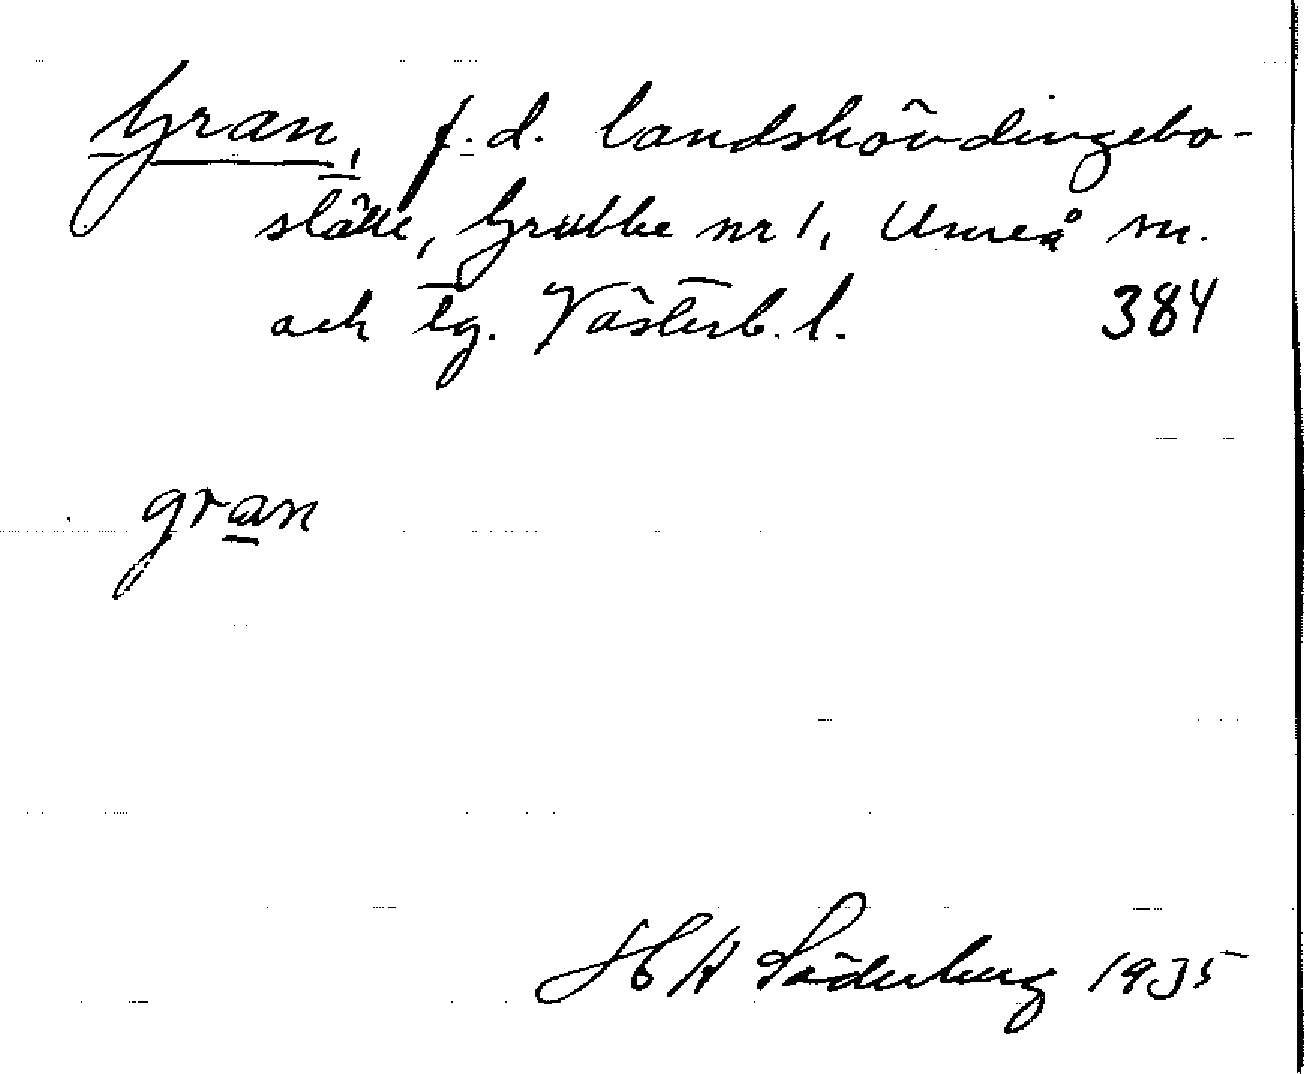 Gran, f.d. landshövdingebo-
ställe, Grubbe nr 1, Umeå sn.
och tg. Västerb. l. 384
gran
H A Söderberg 1935